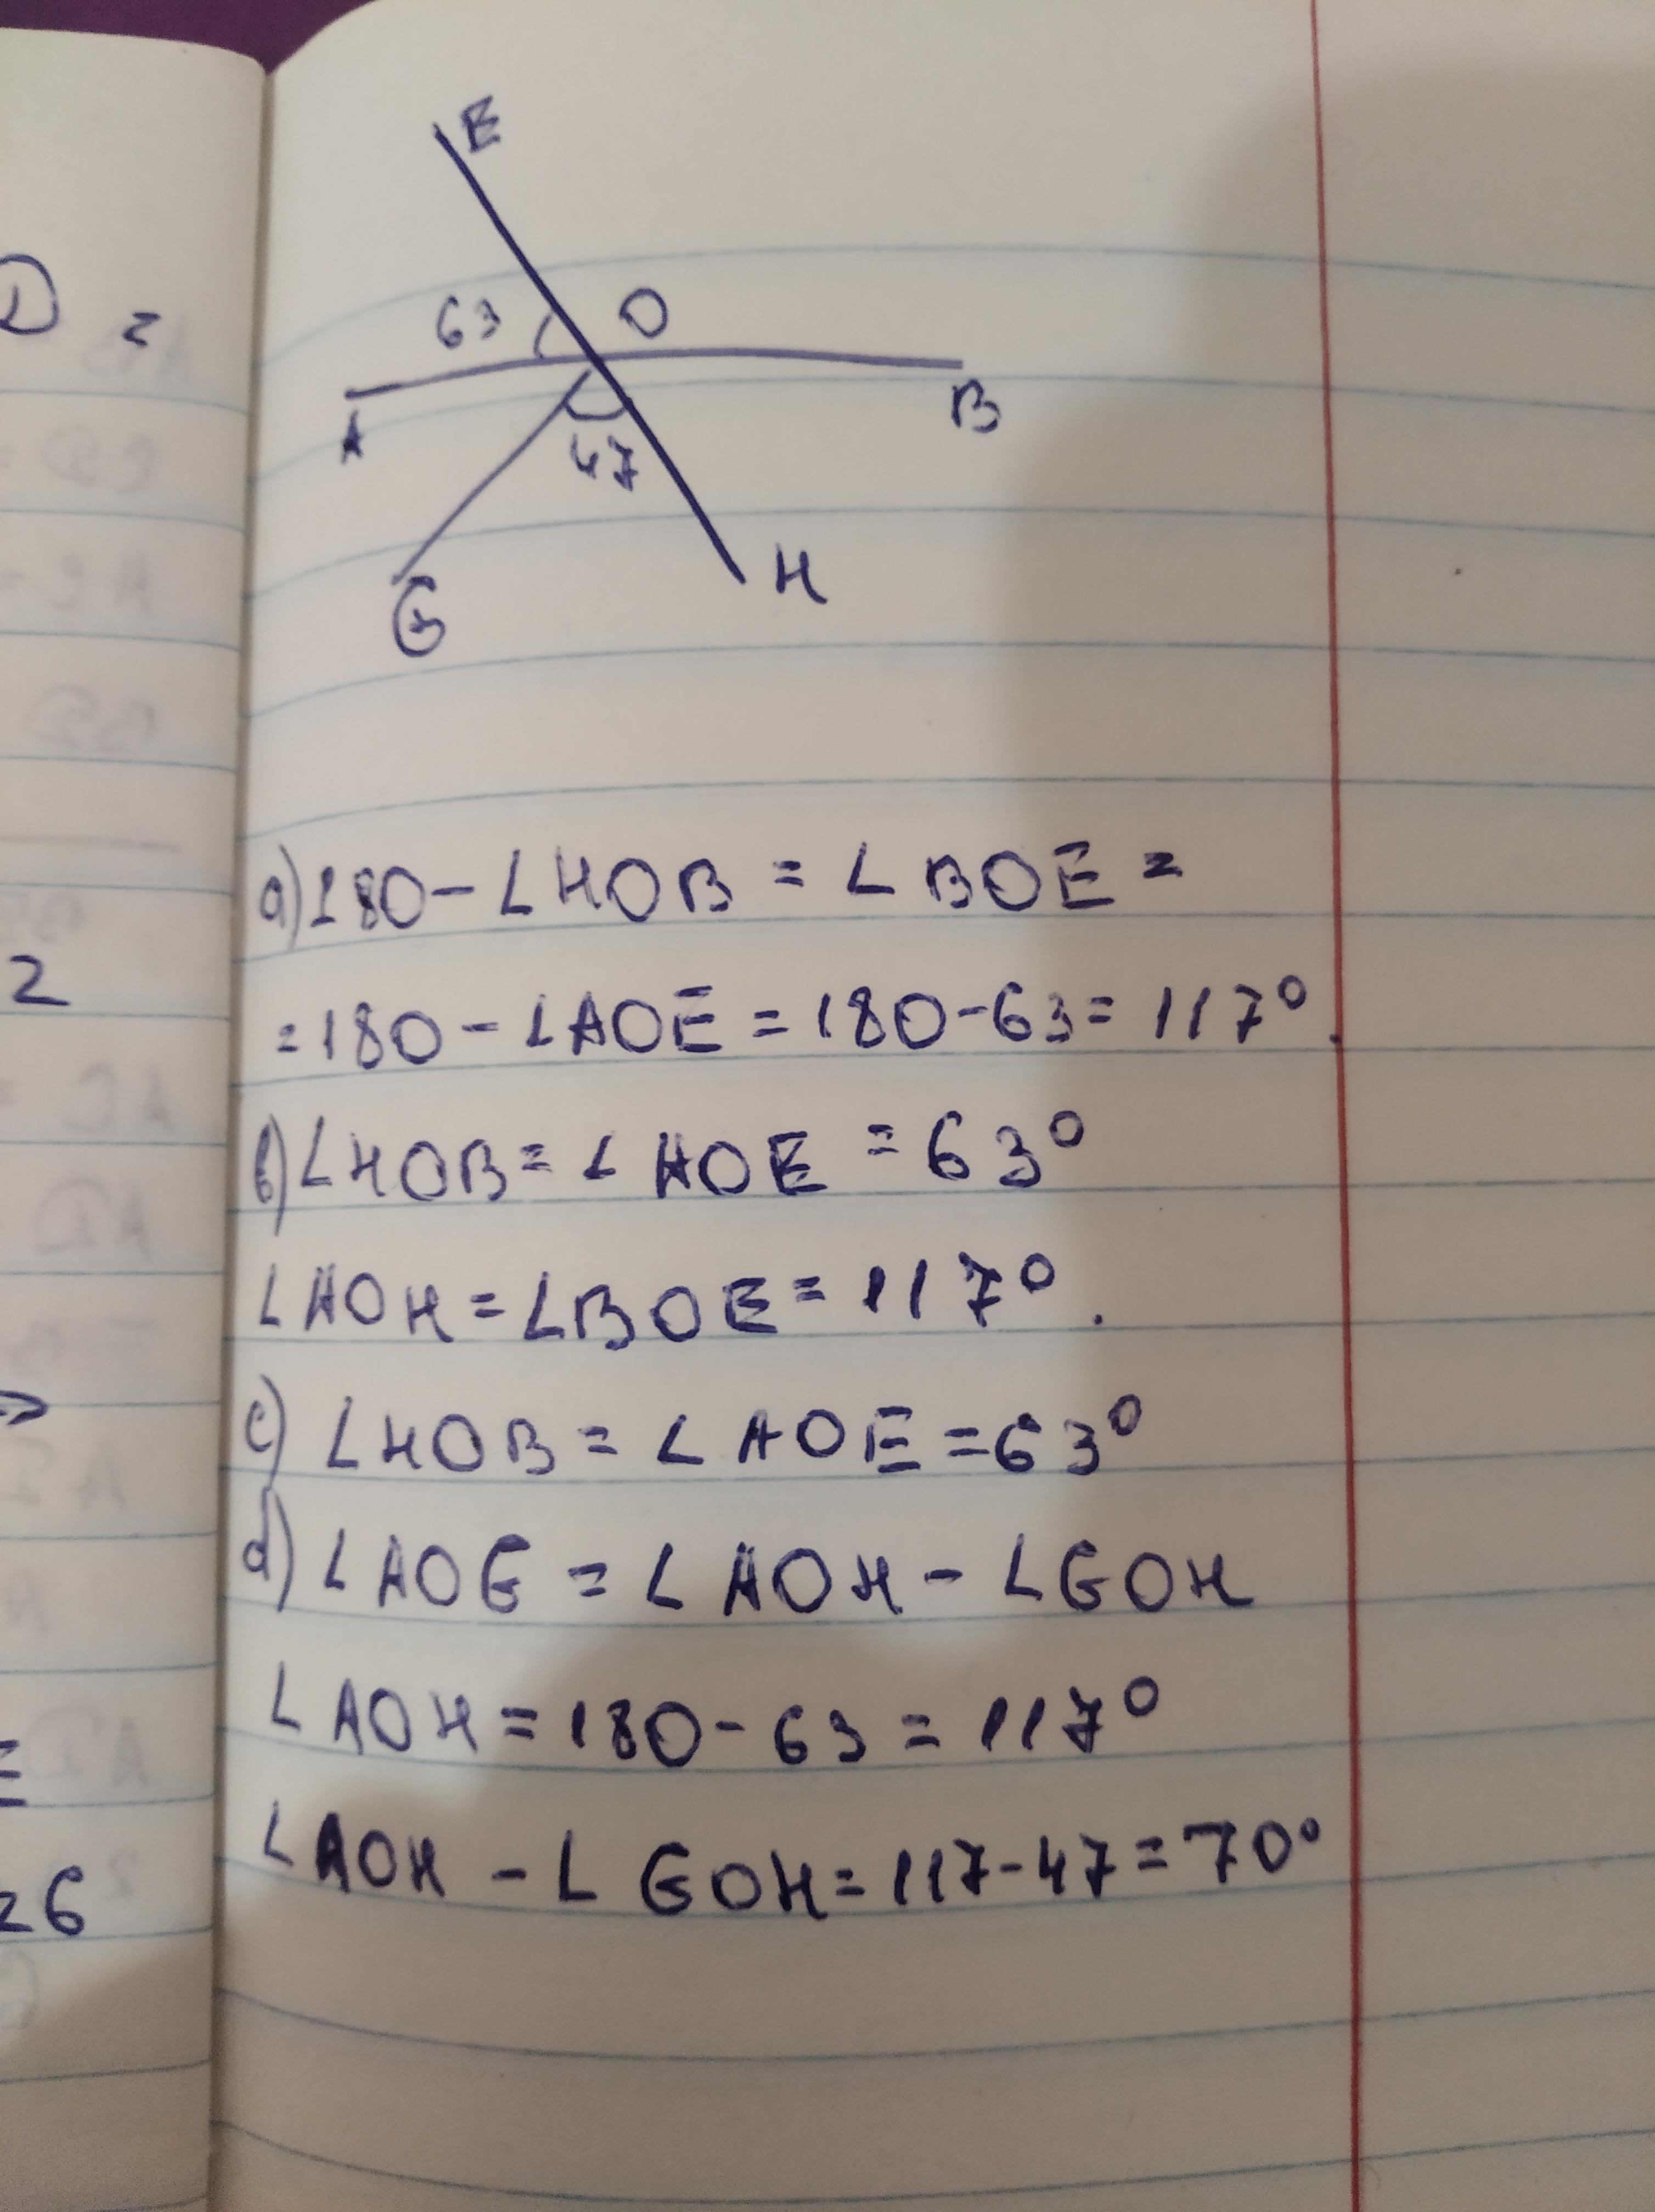 E
63
O
A
B
47
G
H
a) 180 - ∠HOB = ∠BOE =
= 180 - ∠AOE = 180 - 63 = 117°.
b) ∠HOB = ∠AOE = 63°
∠AOH = ∠BOE = 117°.
c) ∠HOB = ∠AOE = 63°
d) ∠AOG = ∠AOH - ∠GOH
∠AOH = 180 - 63 = 117°
∠AOH - ∠GOH = 117 - 47 = 70°
D =
2
=
26